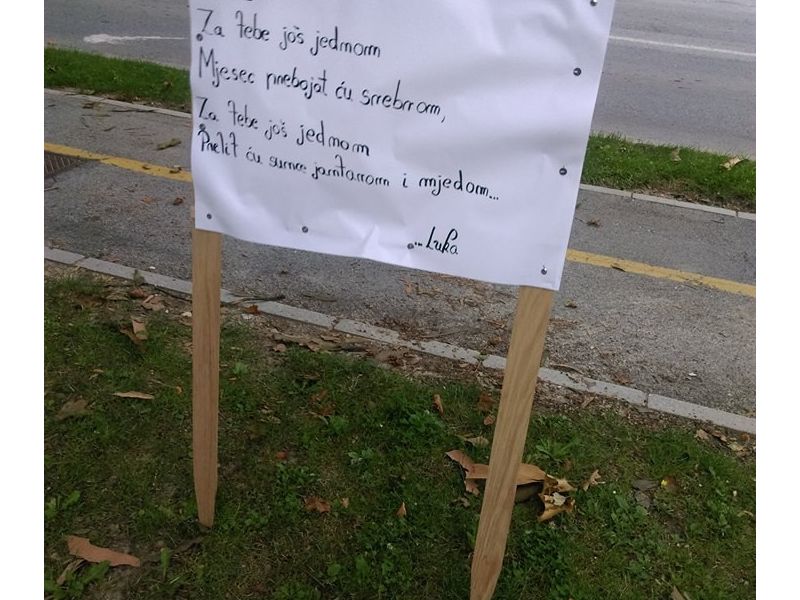 Za tebe još jednom
Mjesec prebojat ću srebrom,
Za tebe još jednom
Prelit ću sunce jantarom i mjedom...
...Luka